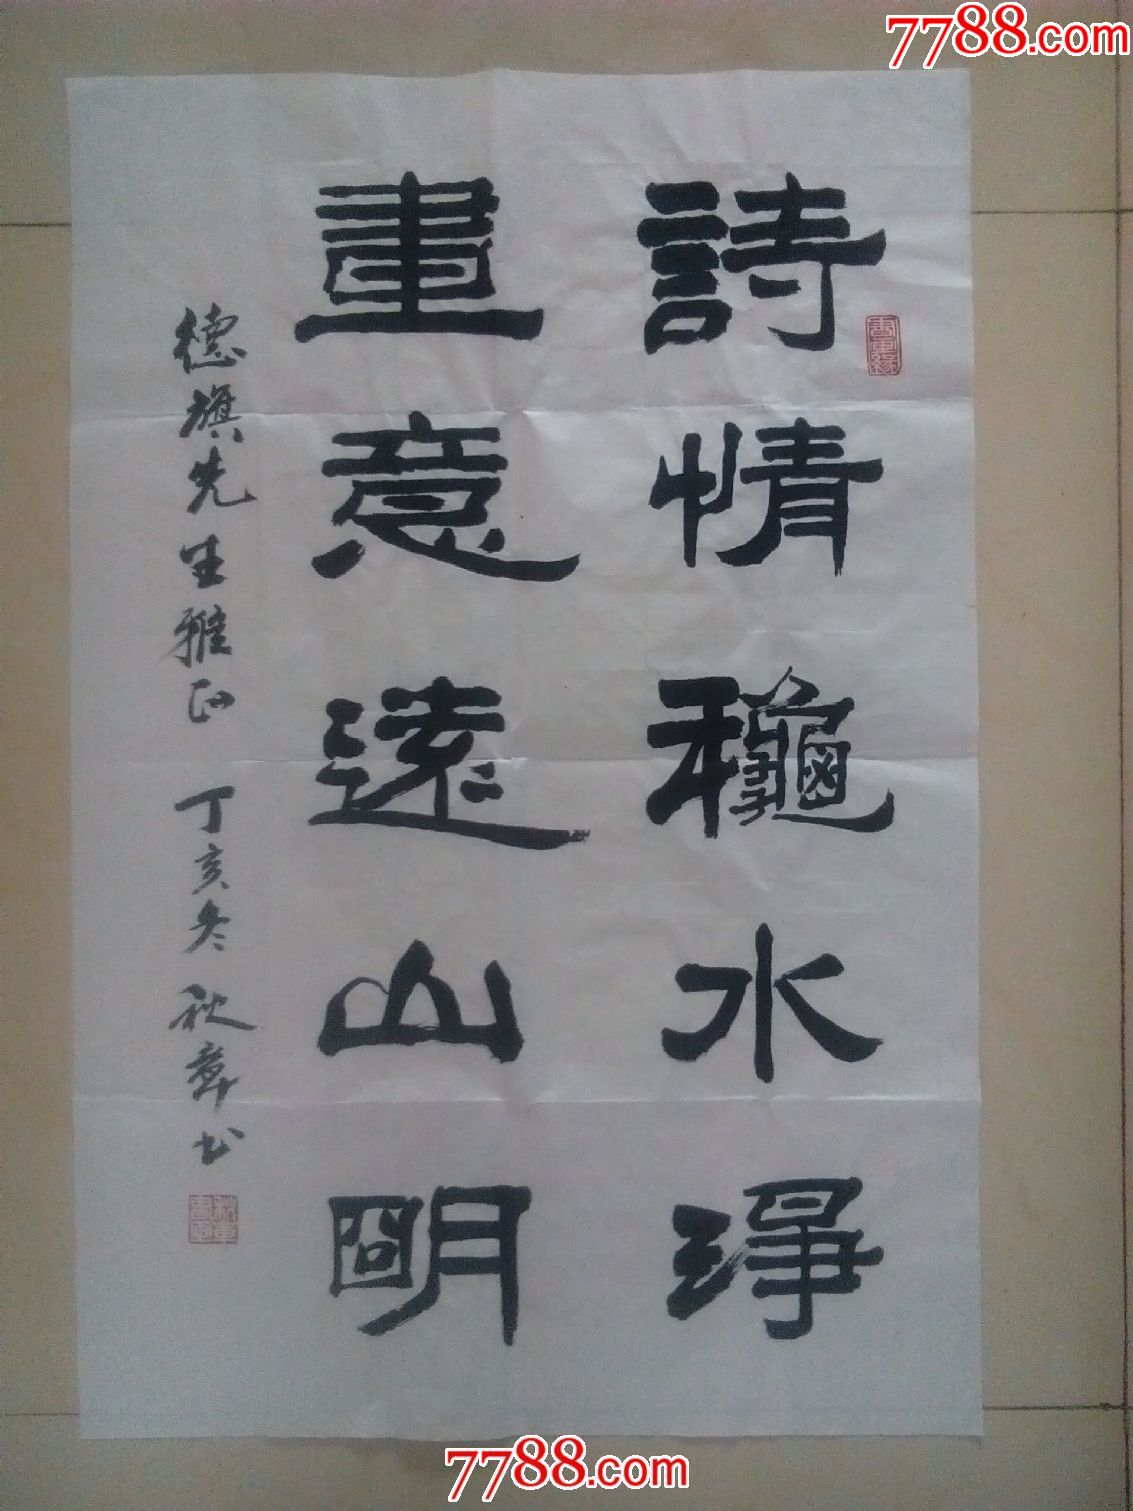 7788.com
詩情龝水淨
畫意遠山朙
德旗先生雅正 丁亥冬 秋章书
7788.com